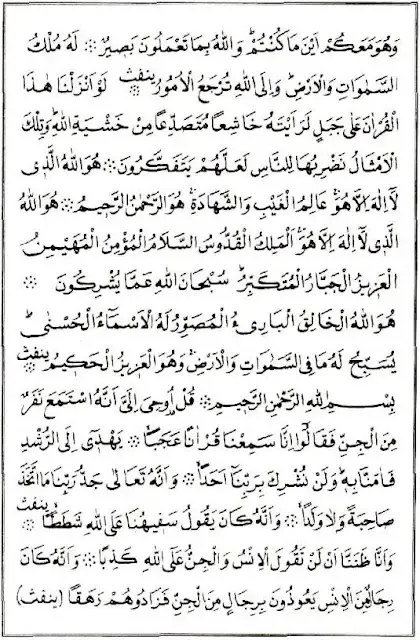 وَهُوَ مَعَكُمْ اَيْنَ مَا كُنْتُمْ وَاللهُ بِمَا تَعْمَلُونَ بَصِيرٌ ۞ لَهُ مُلْكُ
السَّمٰوَاتِ وَالْاَرْضِ وَاِلَى اللهِ تُرْجَعُ الْاُمُورُ ينفث لَوْ اَنْزَلْنَا هٰذَا
الْقُرْاٰنَ عَلٰى جَبَلٍ لَرَاَيْتَهُ خَاشِعًا مُتَصَدِّعًا مِنْ خَشْيَةِ اللهِ وَتِلْكَ
الْاَمْثَالُ نَضْرِبُهَا لِلنَّاسِ لَعَلَّهُمْ يَتَفَكَّرُونَ ۞ هُوَ اللهُ الَّذِى
لَا اِلٰهَ اِلَّا هُوَ عَالِمُ الْغَيْبِ وَالشَّهَادَةِ هُوَ الرَّحْمٰنُ الرَّحِيمُ ۞ هُوَ اللهُ
الَّذِى لَا اِلٰهَ اِلَّا هُوَ اَلْمَلِكُ الْقُدُّوسُ السَّلَامُ الْمُؤْمِنُ الْمُهَيْمِنُ
الْعَزِيزُ الْجَبَّارُ الْمُتَكَبِّرُ سُبْحَانَ اللهِ عَمَّا يُشْرِكُونَ ۞
هُوَ اللهُ الْخَالِقُ الْبَارِئُ الْمُصَوِّرُ لَهُ الْاَسْمَاءُ الْحُسْنٰى
يُسَبِّحُ لَهُ مَا فِى السَّمٰوَاتِ وَالْاَرْضِ وَهُوَ الْعَزِيزُ الْحَكِيمُ ينفث
بِسْمِ اللهِ الرَّحْمٰنِ الرَّحِيمِ ۞ قُلْ اُوحِىَ اِلَىَّ اَنَّهُ اسْتَمَعَ نَفَرٌ
مِنَ الْجِنِّ فَقَالُوا اِنَّا سَمِعْنَا قُرْاٰنًا عَجَبًا ۞ يَهْدِى اِلَى الرُّشْدِ
فَاٰمَنَّا بِهِ وَلَنْ نُشْرِكَ بِرَبِّنَا اَحَدًا ۞ وَاَنَّهُ تَعَالٰى جَدُّ رَبِّنَا مَا اتَّخَذَ
صَاحِبَةً وَلَا وَلَدًا ۞ وَاَنَّهُ كَانَ يَقُولُ سَفِيهُنَا عَلَى اللهِ شَطَطًا ينفث
وَاَنَّا ظَنَنَّا اَنْ لَنْ تَقُولَ الْاِنْسُ وَالْجِنُّ عَلَى اللهِ كَذِبًا ۞ وَاَنَّهُ كَانَ
رِجَالٌ مِنَ الْاِنْسِ يَعُوذُونَ بِرِجَالٍ مِنَ الْجِنِّ فَزَادُوهُمْ رَهَقًا (ينفث)